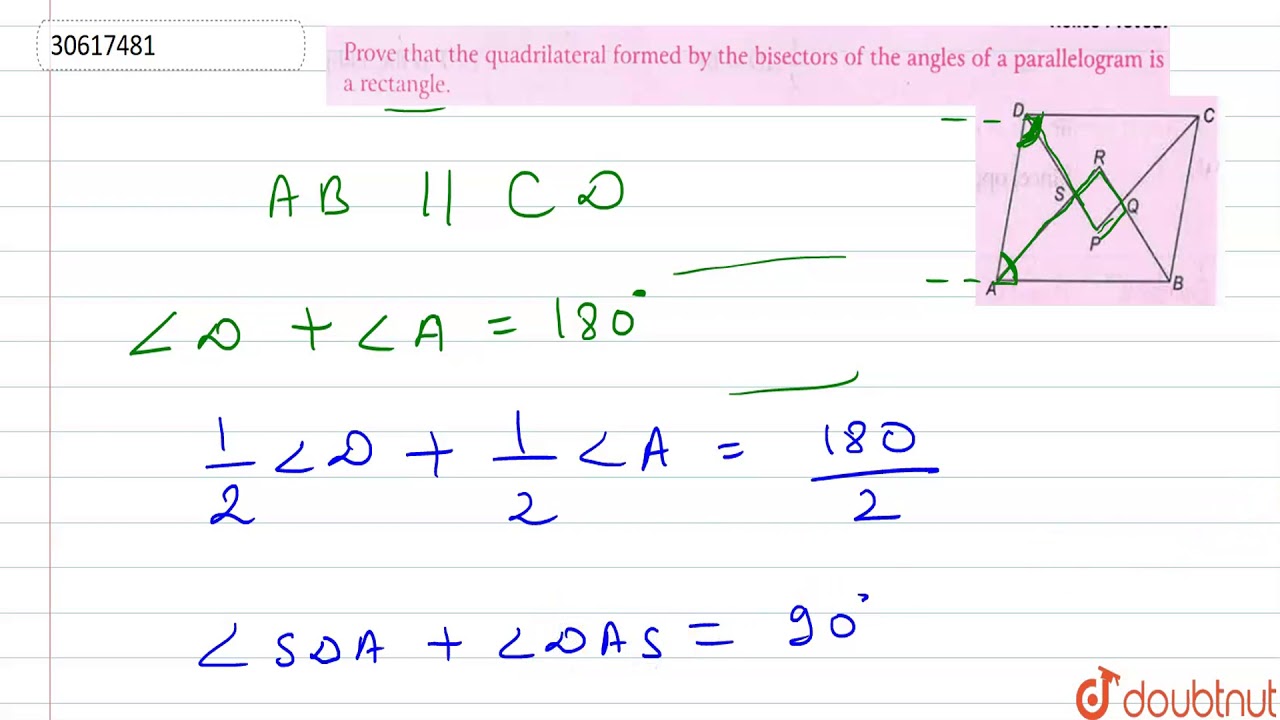 30617481
Hence Proved.
Prove that the quadrilateral formed by the bisectors of the angles of a parallelogram is
a rectangle.
D
C
R
S
Q
P
A
B
AB || CD
∠D + ∠A = 180°
1/2 ∠D + 1/2 ∠A = 180/2
∠SDA + ∠DAS = 90°
doubtnut